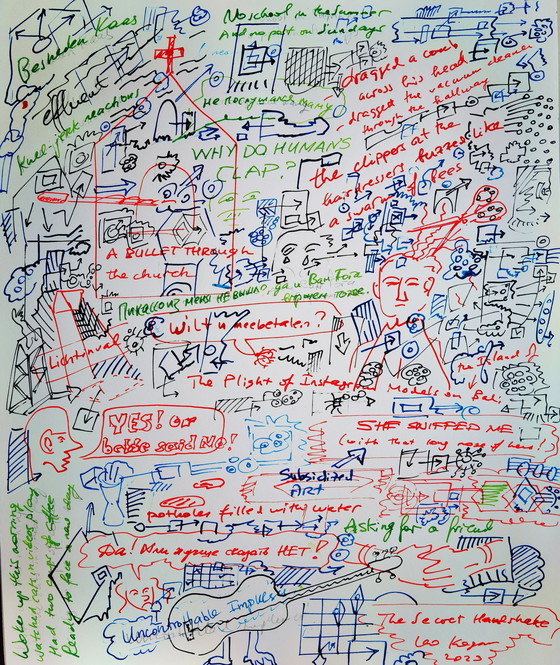 Kaas
effluent
Knee-jerk reactions
No school in the summer
And no on Sundays
Не послушалась маму
WHY DO HUMANS
CLAP?
dragged a comb
across his head
dragged the vacuum cleaner
through the hallway
the clippers at the
hairdressers buzzed like
a swarm of bees
A BULLET THROUGH
the church
Пикассо из меня не вышло, да и Ван Гога
впрочем тоже.
Wilt u meebetalen?
Lichtinval
The Plight of Instagram Models on Bali,
the Island
YES! Or
said No!
SHE SNIFFED ME
(with that long nose of hers!)
Subsidized
Art
potholes filled with water
Asking for a friend
Да! Или лучше сказать НЕТ!
Woke up this morning
Watched play
Had two cups of coffee
Ready to face the day
Uncontrollable Impulses
The Secret Handshake
Leo Kogan
2023